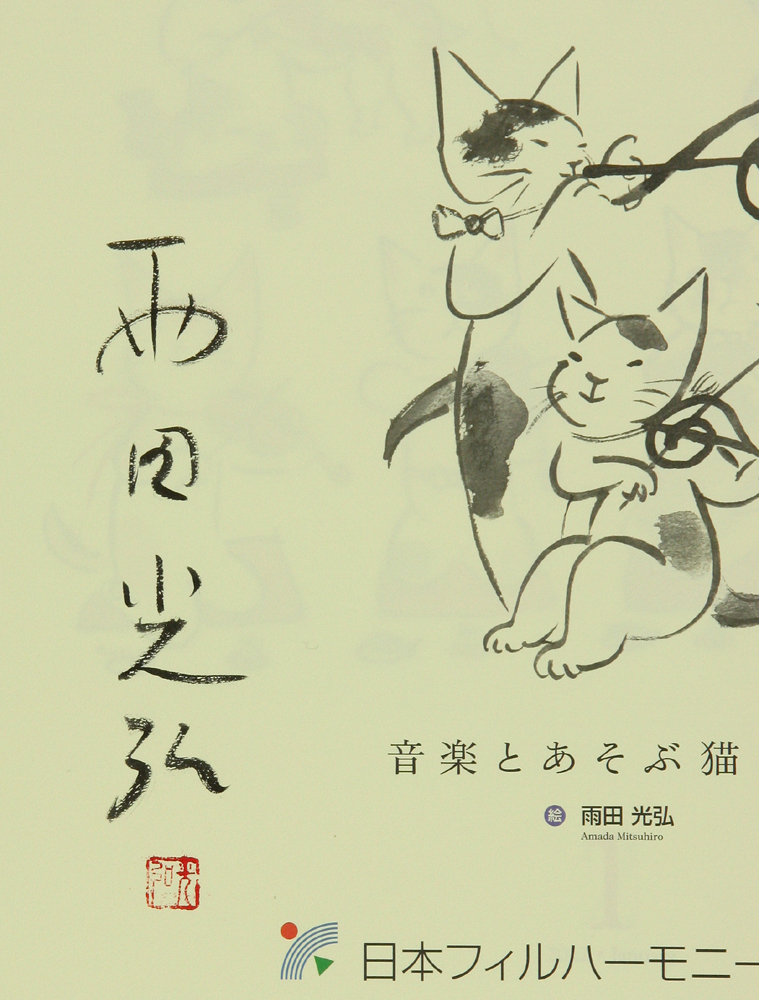 雨田光弘
音楽とあそぶ猫
絵 雨田 光弘
Amada Mitsuhiro
日本フィルハーモニー